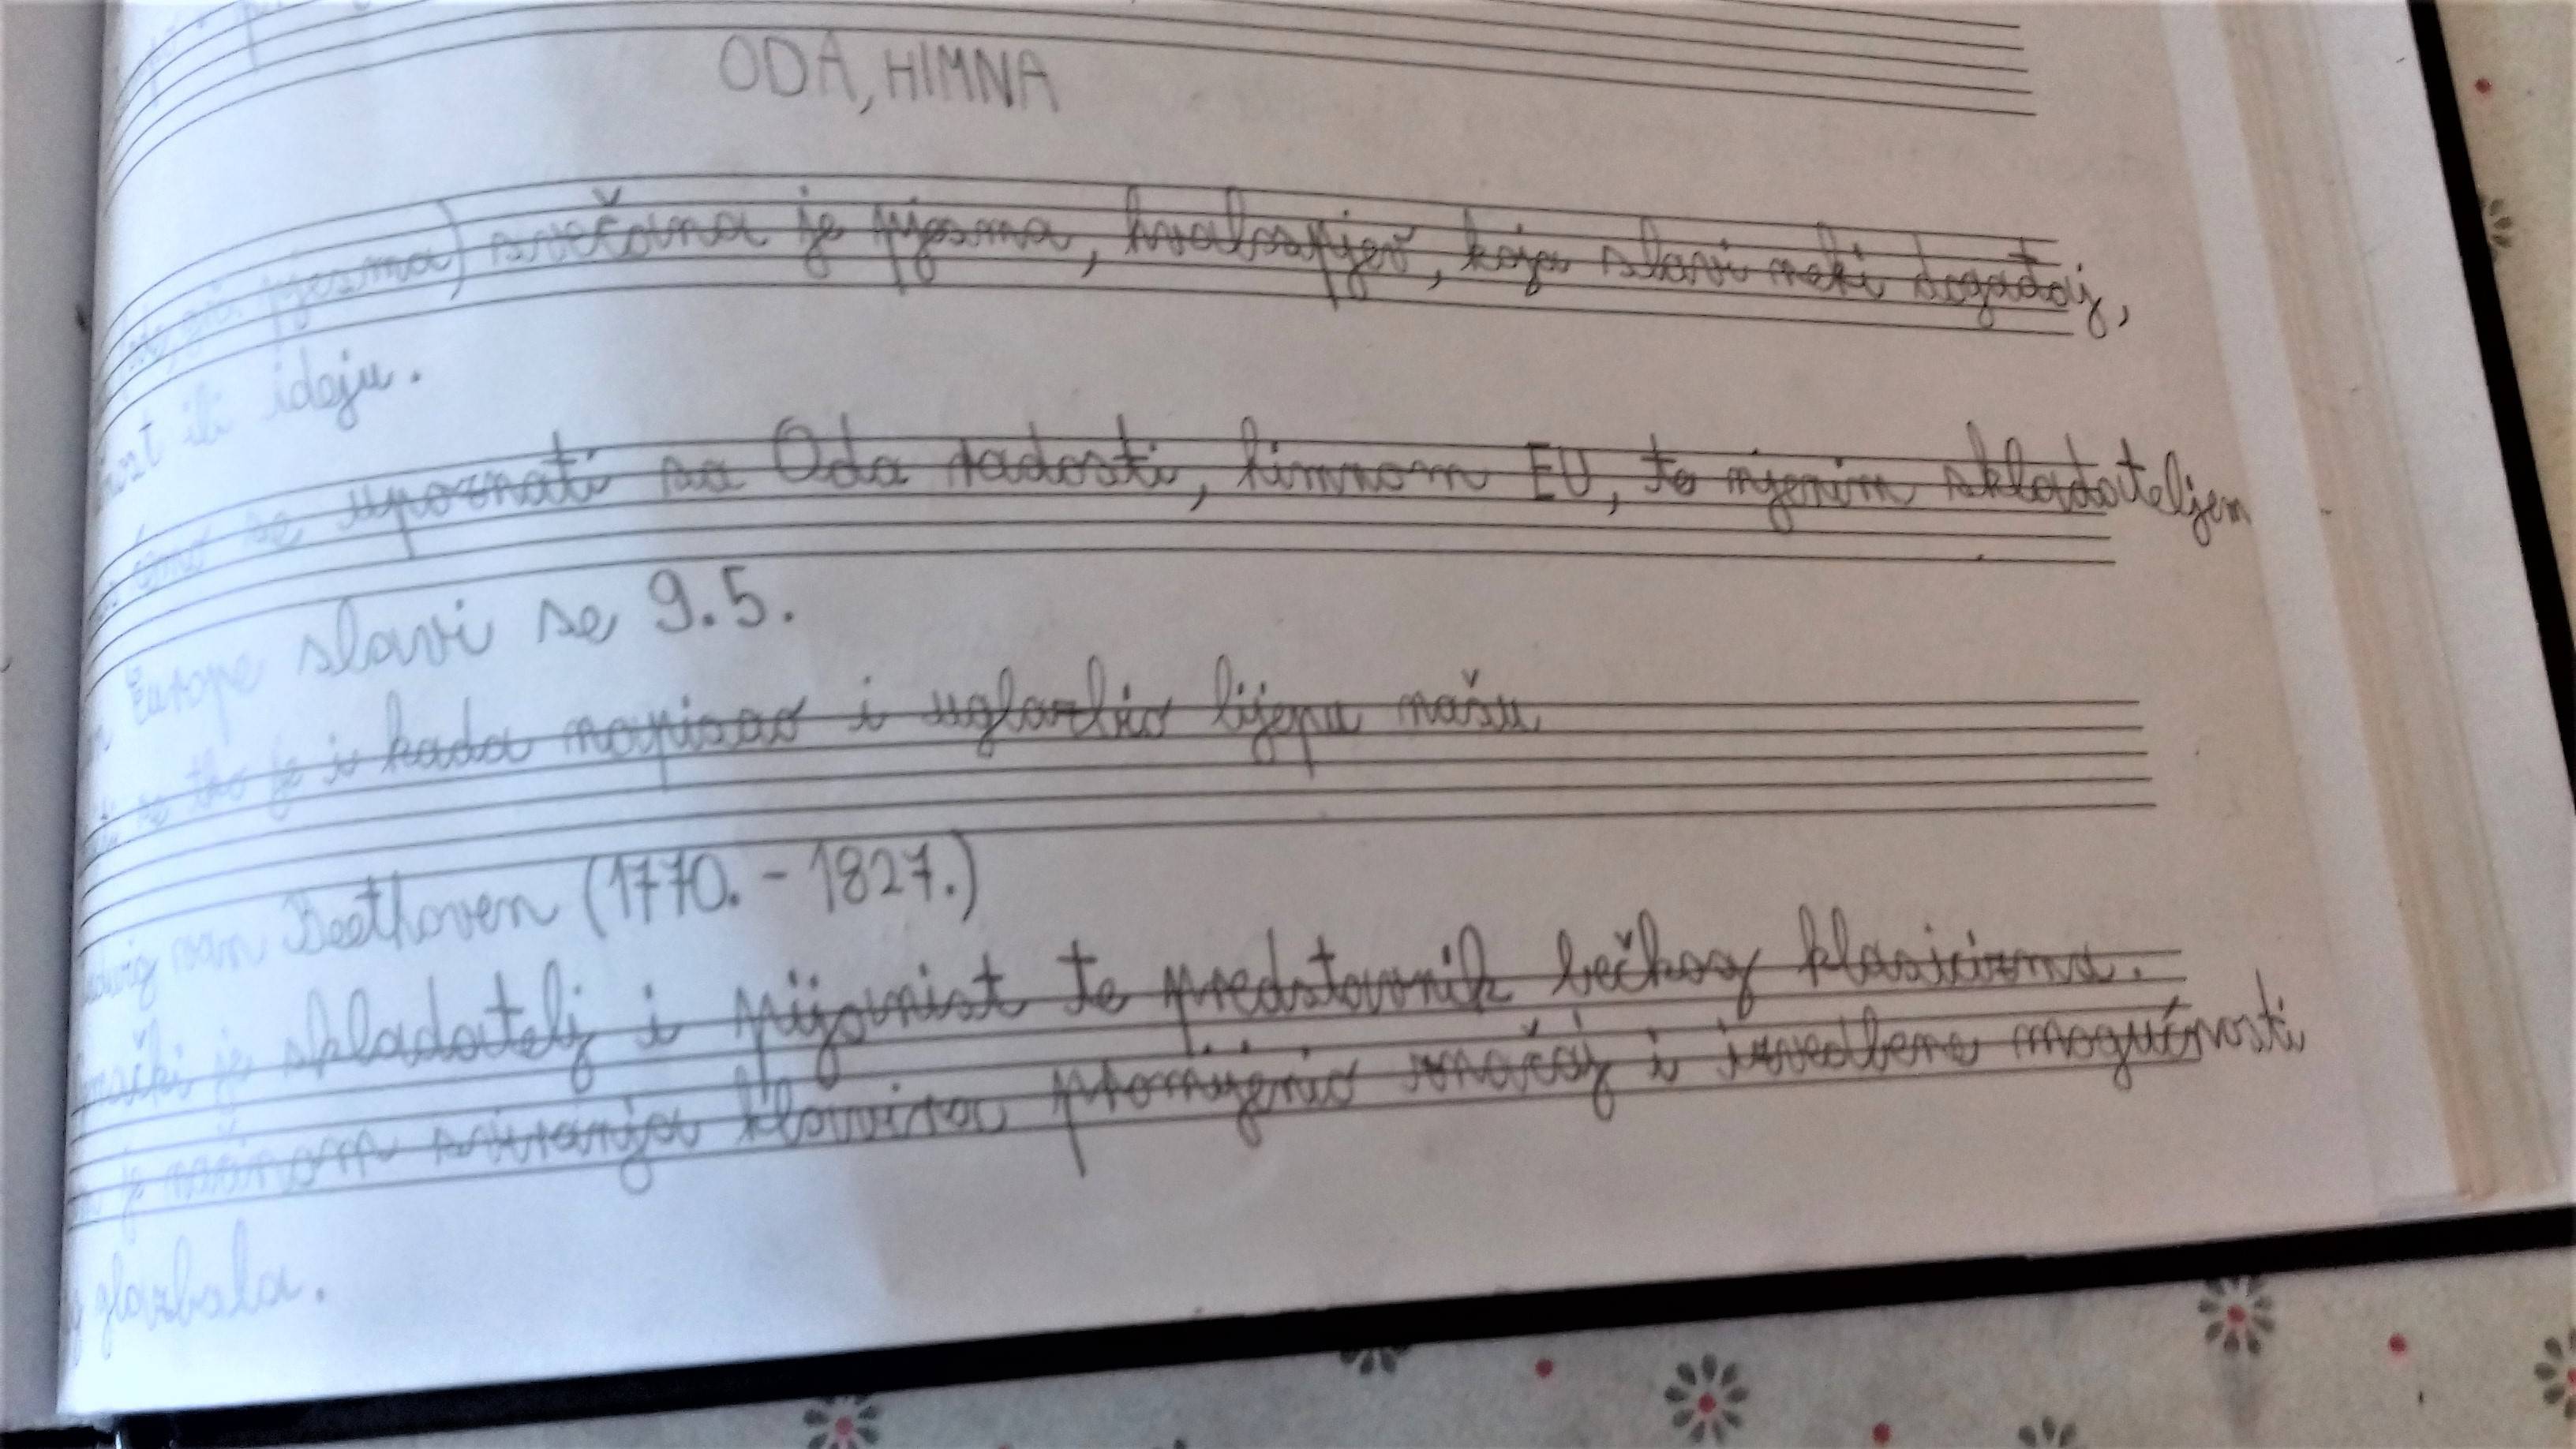 ODA, HIMNA
pjesma) svečana je pjesma, hvalospjev, koja slavi neki događaj,
ili ideju.
ćemo se upoznati sa Oda radosti, himnom EU, te njenim skladateljem
Europe slavi se 9.5.
tko je i kada napisao i uglazbio lijepu našu
van Beethoven (1770. - 1827.)
je skladatelj i pijanist te predstavnik bečkog klasicizma.
je načinom sviranja klavira promijenio značaj i izvedbene mogućnosti
glazbala.